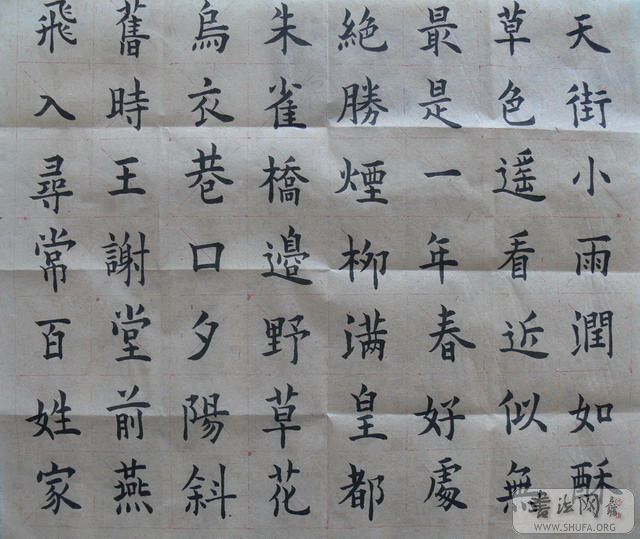 天街小雨潤如酥
草色遥看近似無
最是一年春好處
絶勝煙柳满皇都
朱雀橋邊野草花
烏衣巷口夕陽斜
舊時王謝堂前燕
飛入尋常百姓家
書法网
WWW.SHUFA.ORG